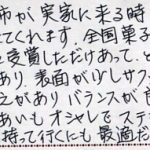 姉が実家に来る時
てくれます。全国菓子
を受賞しただけあって、と
あり、表面が少しサフ
えがありバランスが良
あいもオシャレでステ
持って行くにも最適だ